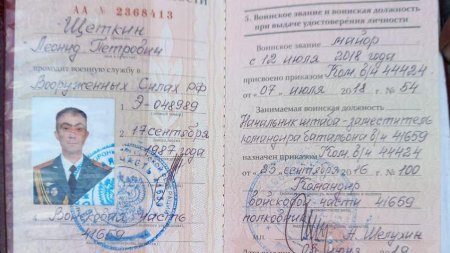 АА № 2368413
Щеткин
Леонид Петрович
проходит военную службу в
Вооруженных Силах РФ
Э-048989
2.
17 сентября
1987 года
3.
4.
Войсковая часть
41659
5. Воинское звание и воинская должность
при выдаче удостоверения личности
Воинское звание майор
с 12 июля 2018 года
присвоено приказом Ком. в/ч 44424
от 07 июля 2018 г. № 54
Занимаемая воинская должность
Начальник штаба-заместитель
командира батальона в/ч 41659
назначен приказом Ком. в/ч 44424
от 25 сентября 2016 г. № 100
Командир
войсковой части 41659
полковник
М.П. А.
июня 2019